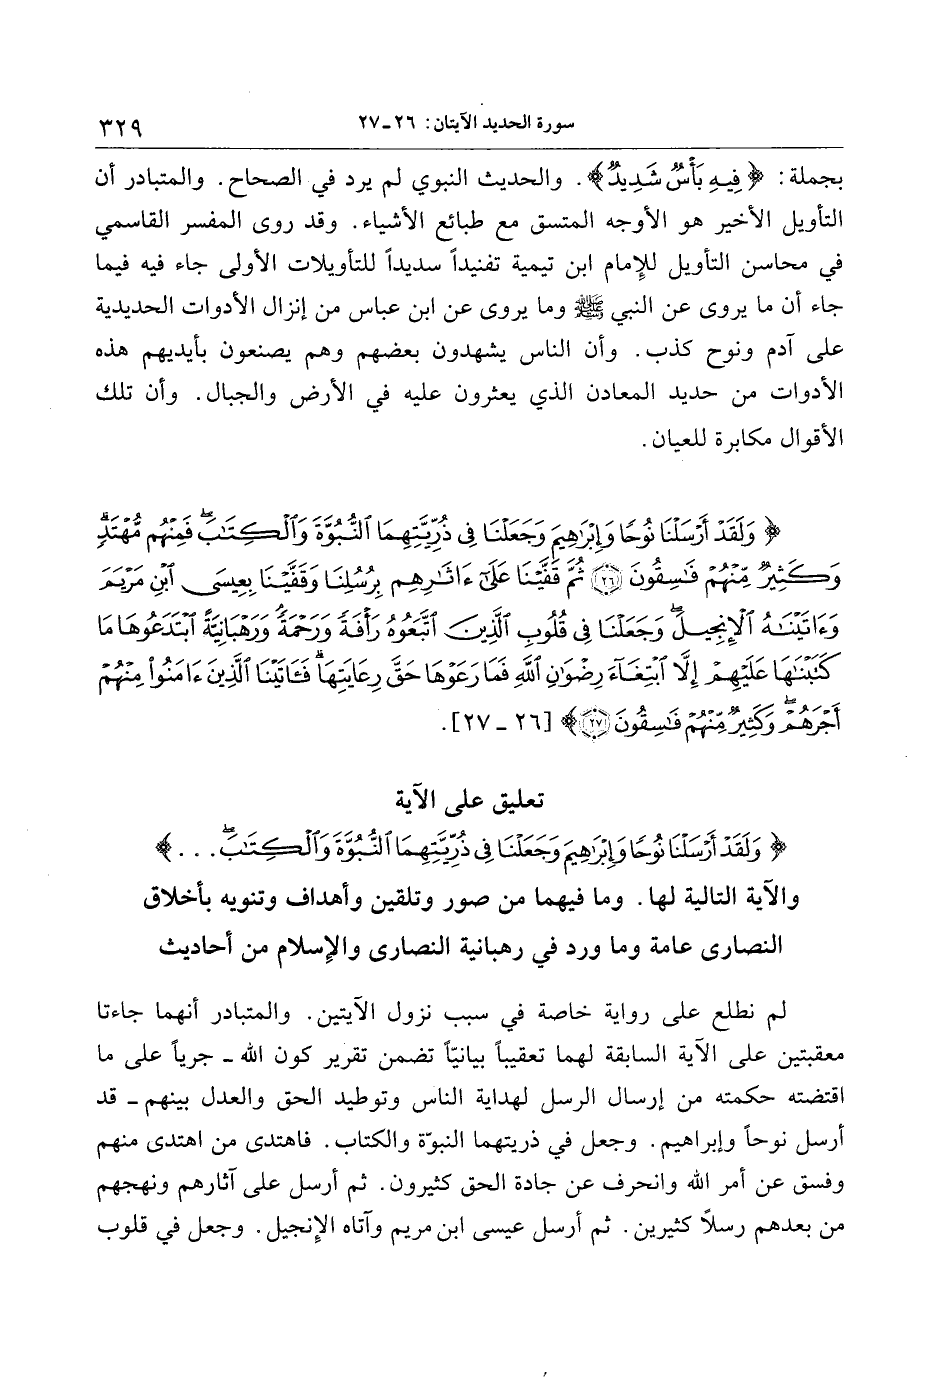 سورة الحديد الآيتان: ٢٦ـ٢٧
٣٢٩
بجملة: ﴿ فِيهِ بَأْسٌ شَدِيدٌ﴾. والحديث النبوي لم يرد في الصحاح. والمتبادر أن
التأويل الأخير هو الأوجه المتسق مع طبائع الأشياء. وقد روى المفسر القاسمي
في محاسن التأويل للإمام ابن تيمية تفنيداً سديداً للتأويلات الأولى جاء فيه فيما
جاء أن ما يروى عن النبي ﷺ وما يروى عن ابن عباس من إنزال الأدوات الحديدية
على آدم ونوح كذب. وأن الناس يشهدون بعضهم وهم يصنعون بأيديهم هذه
الأدوات من حديد المعادن الذي يعثرون عليه في الأرض والجبال. وأن تلك
الأقوال مكابرة للعيان.
﴿ وَلَقَدْ أَرْسَلْنَا نُوحًا وَإِبْرَاهِيمَ وَجَعَلْنَا فِي ذُرِّيَّتِهِمَا ٱلنُّبُوَّةَ وَٱلْكِتَٰبَۖ فَمِنْهُم مُّهْتَدٍۖ
وَكَثِيرٌ مِّنْهُمْ فَٰسِقُونَ ﴿٢٦﴾ ثُمَّ قَفَّيْنَا عَلَىٰٓ ءَاثَٰرِهِم بِرُسُلِنَا وَقَفَّيْنَا بِعِيسَى ٱبْنِ مَرْيَمَ
وَءَاتَيْنَٰهُ ٱلْإِنجِيلَۖ وَجَعَلْنَا فِي قُلُوبِ ٱلَّذِينَ ٱتَّبَعُوهُ رَأْفَةً وَرَحْمَةًۚ وَرَهْبَانِيَّةً ٱبْتَدَعُوهَا مَا
كَتَبْنَٰهَا عَلَيْهِمْ إِلَّا ٱبْتِغَآءَ رِضْوَٰنِ ٱللَّهِ فَمَا رَعَوْهَا حَقَّ رِعَايَتِهَاۖ فَـَٔاتَيْنَا ٱلَّذِينَ ءَامَنُوا۟ مِنْهُمْ
أَجْرَهُمْۖ وَكَثِيرٌ مِّنْهُمْ فَٰسِقُونَ ﴿٢٧﴾﴾ [٢٦ ـ ٢٧].
تعليق على الآية
﴿ وَلَقَدْ أَرْسَلْنَا نُوحًا وَإِبْرَاهِيمَ وَجَعَلْنَا فِي ذُرِّيَّتِهِمَا ٱلنُّبُوَّةَ وَٱلْكِتَٰبَۖ . . . ﴾
والآية التالية لها. وما فيهما من صور وتلقين وأهداف وتنويه بأخلاق
النصارى عامة وما ورد في رهبانية النصارى والإسلام من أحاديث
لم نطلع على رواية خاصة في سبب نزول الآيتين. والمتبادر أنهما جاءتا
معقبتين على الآية السابقة لهما تعقيباً بيانيّاً تضمن تقرير كون الله ـ جرياً على ما
اقتضته حكمته من إرسال الرسل لهداية الناس وتوطيد الحق والعدل بينهم ـ قد
أرسل نوحاً وإبراهيم. وجعل في ذريتهما النبوّة والكتاب. فاهتدى من اهتدى منهم
وفسق عن أمر الله وانحرف عن جادة الحق كثيرون. ثم أرسل على آثارهم ونهجهم
من بعدهم رسلاً كثيرين. ثم أرسل عيسى ابن مريم وآتاه الإنجيل. وجعل في قلوب